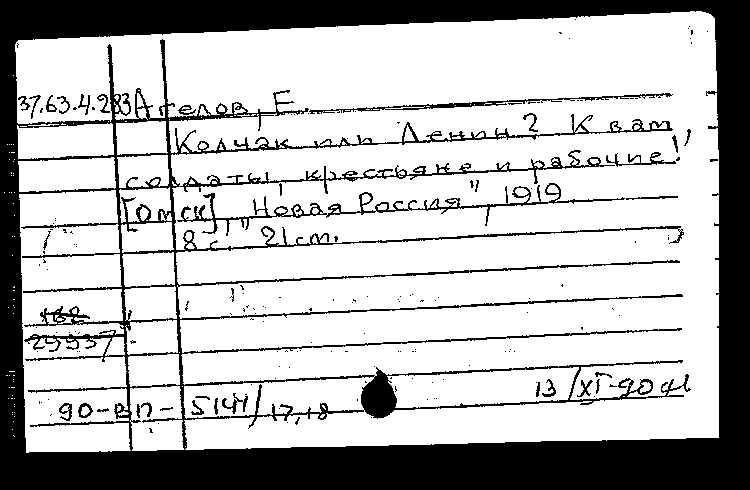 37.63.4.283 Агелов, Е.
Колчак или Ленин? К вам,
солдаты, крестьяне и рабочие!
[Омск], "Новая Россия", 1919
8 с. 21 см.
162
29937
90-ВП-5144/17,18
13/XI-90